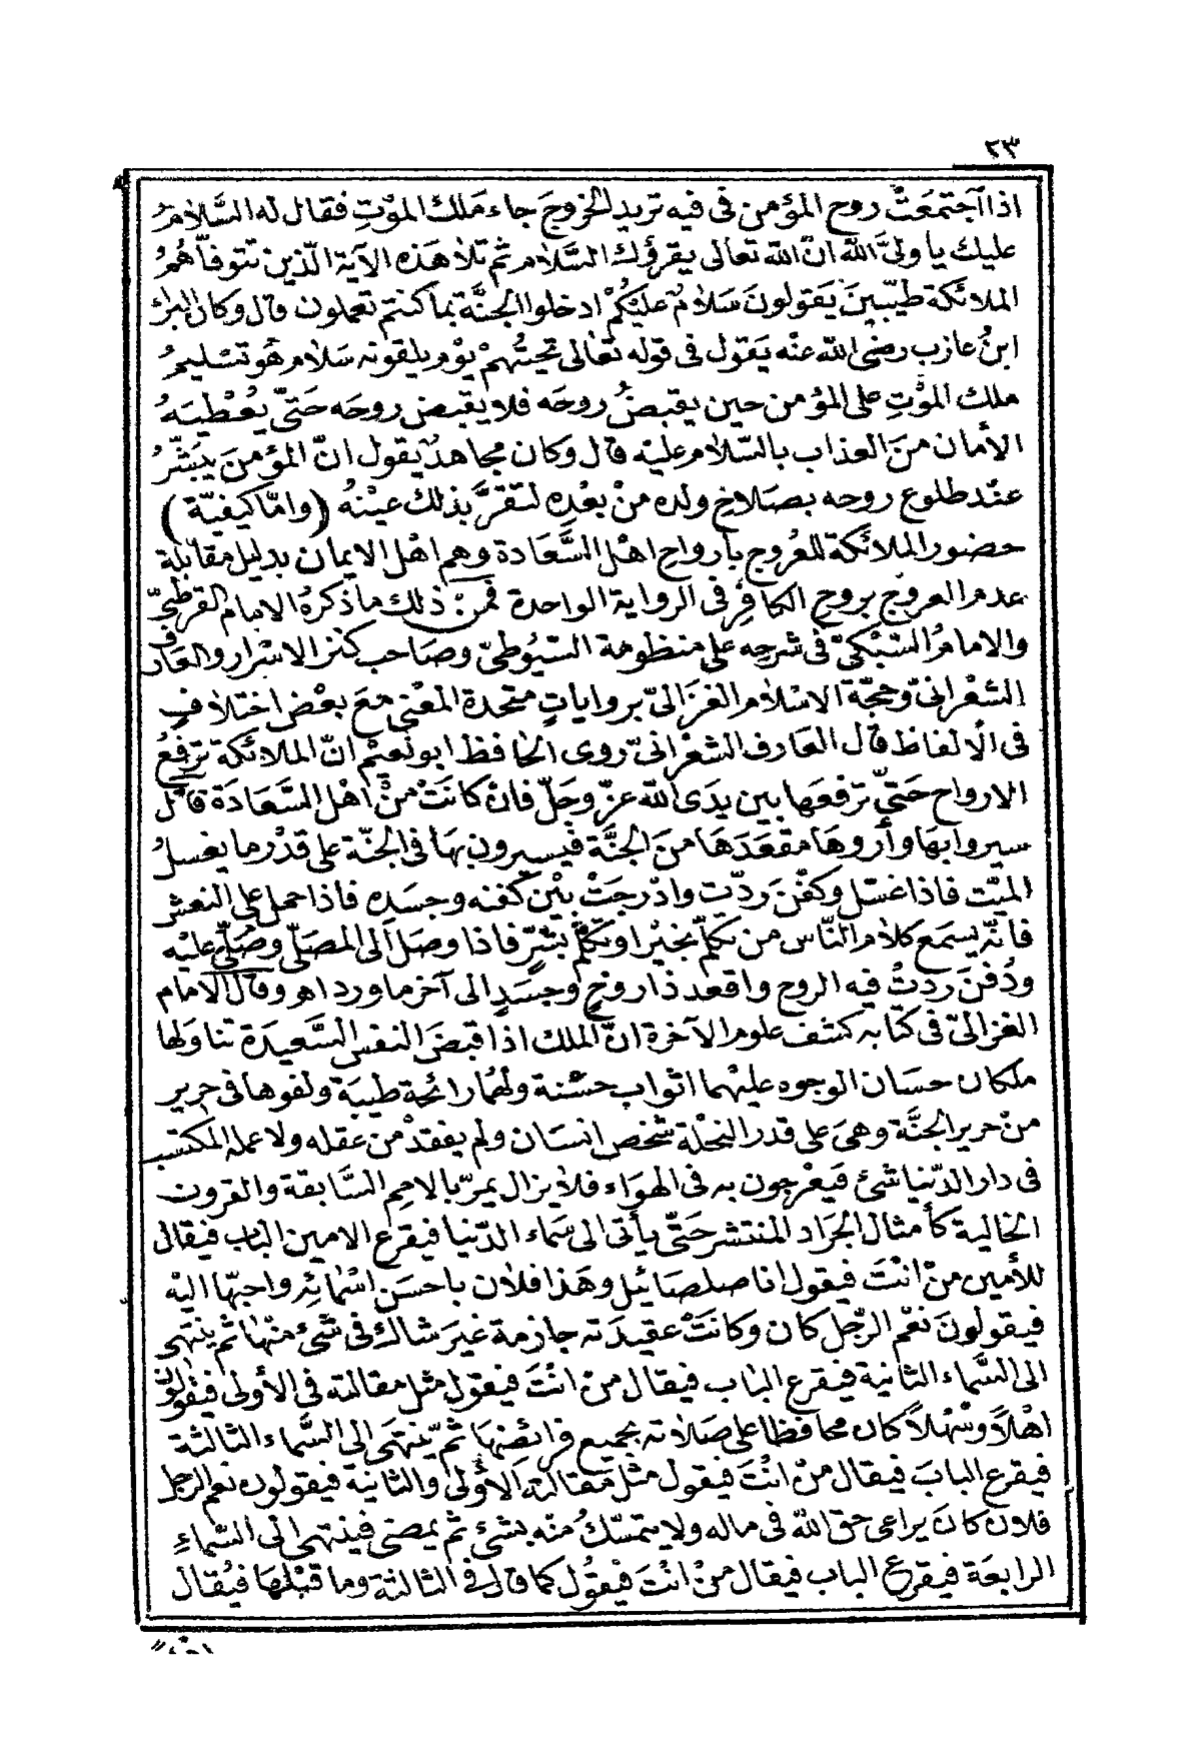 ٢٣
اذا اجتمعت روح المؤمن فى فيه تريد الخروج جاء ملك الموت فقال له السّلام
عليك يا ولىّ الله انّ الله تعالى يقرؤك السّلام ثم تلا هذه الآية الّذين تتوفّاهم
الملائكة طيّبين يقولون سَلامٌ عليكمْ ادخلوا الجنّة بما كنتم تعملون قال وكان البراء
ابنُ عازب رضى الله عنه يَقول فى قوله تعَالى تحيّتُهمْ يوْم يلقونه سَلام هُو تسْليمُ
ملك الموْتِ على المؤمن حين يقبضُ روحَه فلا يقبض روحَه حَتىّ يُعْطيَهُ
الأمان منَ العذاب بالسّلام عليْه قال وكان مجاهدٌ يقول انّ المؤمنَ يبَشّرُ
عنْد طلوع روحه بصَلاح ولده منْ بعْدِه لتقرَّ بذلك عيْنهُ (وامّا كيفيّة)
حضور الملائكة للعُروج بأرواح اهْل السَّعَادة وهم اهْل الايمان بدليل مقابلة
عدم العروج بروح الكافِر فى الرواية الواحدة فمنْ ذلك ما ذكرهُ الامام القرطبىّ
والامامُ السّبْكىّ فى شرحِه على منظومة السّيُوطىّ وصَاحب كنز الاسْرار والعَارف
الشعْرانىّ وحجّة الاسْلام الغزَالىّ بروَاياتٍ متحدة المعْنى معَ بعْض اختلافٍ
فى الالفاظ قال العَارف الشعْرانىّ روى الحافظ ابو نعيْم انّ الملائكة ترفعُ
الارواح حَتىّ ترفعَها بين يدَى الله عزّ وجَلّ فانْ كانَتْ منْ اهْل السَّعَادَة قال
سيروا بهَا وأروهَا مقعَدَهَا منَ الجنّة فيسيرون بهَا فى الجنّة على قدْر ما يغسلُ
الميّت فاذا غسّل وكفّنَ ردّت وادْرجَتْ بيْن كفنه وجسَدِه فاذا حمل على النعش
فانّه يسمَع كلام النّاس من تكلّم بخيْر او تكلّم بشرٍّ فاذا وصَل الى المصَلّى وصُلّى عليْه
ودُفنَ ردتْ فيه الروح واقعد ذا روحٍ وجسَدٍ الى آخر ما ورد اهـ وقال الامام
الغزالىّ فى كتابه كشف علوم الآخرة انّ الملك اذا قبضَ النفس السَّعيدَة تناولها
ملكان حسَان الوجوه عليْهما اثواب حسْنة ولهمَا رائحة طيبَة ولفوها فى حرير
منْ حرير الجنَّة وهىَ على قدر النحْلة شخص انسَان ولم يفقدْ من عقله ولا عمله المكتسب
فى دار الدّنيا شئ فيَعْرجون به فى الهوَاء فلا يزال يمرّ بالامم السَّابقة والقرون
الخالية كأمثال الجَراد المنتشر حَتىّ يأتى الى سَماء الدّنيا فيقرع الامين الباب فيقال
للأمين منْ انتَ فيقول انا صلصائيل وهَذا فلان باحسَن اسْمائِه واحبّها اليْه
فيقولونَ نعْم الرّجل كان وكانتْ عقيدَته جازمة غيرَ شاك فى شئ منْها ثم ينتهى
الى السَّماء الثانية فيقرع البَاب فيقال منْ انتَ فيقول مثل مقالته فى الأولى فيقولون
اهْلاً وسْهلاً كان محافظا على صَلاته بجميع فرائضِهَا ثمّ ينتهَى الى السَّماء الثالثة
فيقرع البابَ فيقال منْ انتَ فيقول مثل مَقالته الأولى والثانية فيقولون نعم الرجل
فلان كانَ يراعى حق الله فى ماله ولا يتمسّكُ منْه بشئ ثم يمضى فينتهى الى السّماءِ
الرابعَة فيقرع الباب فيقال منْ انتَ فيقول كما قال فى الثالثة وما قبْلهَا فيُقال